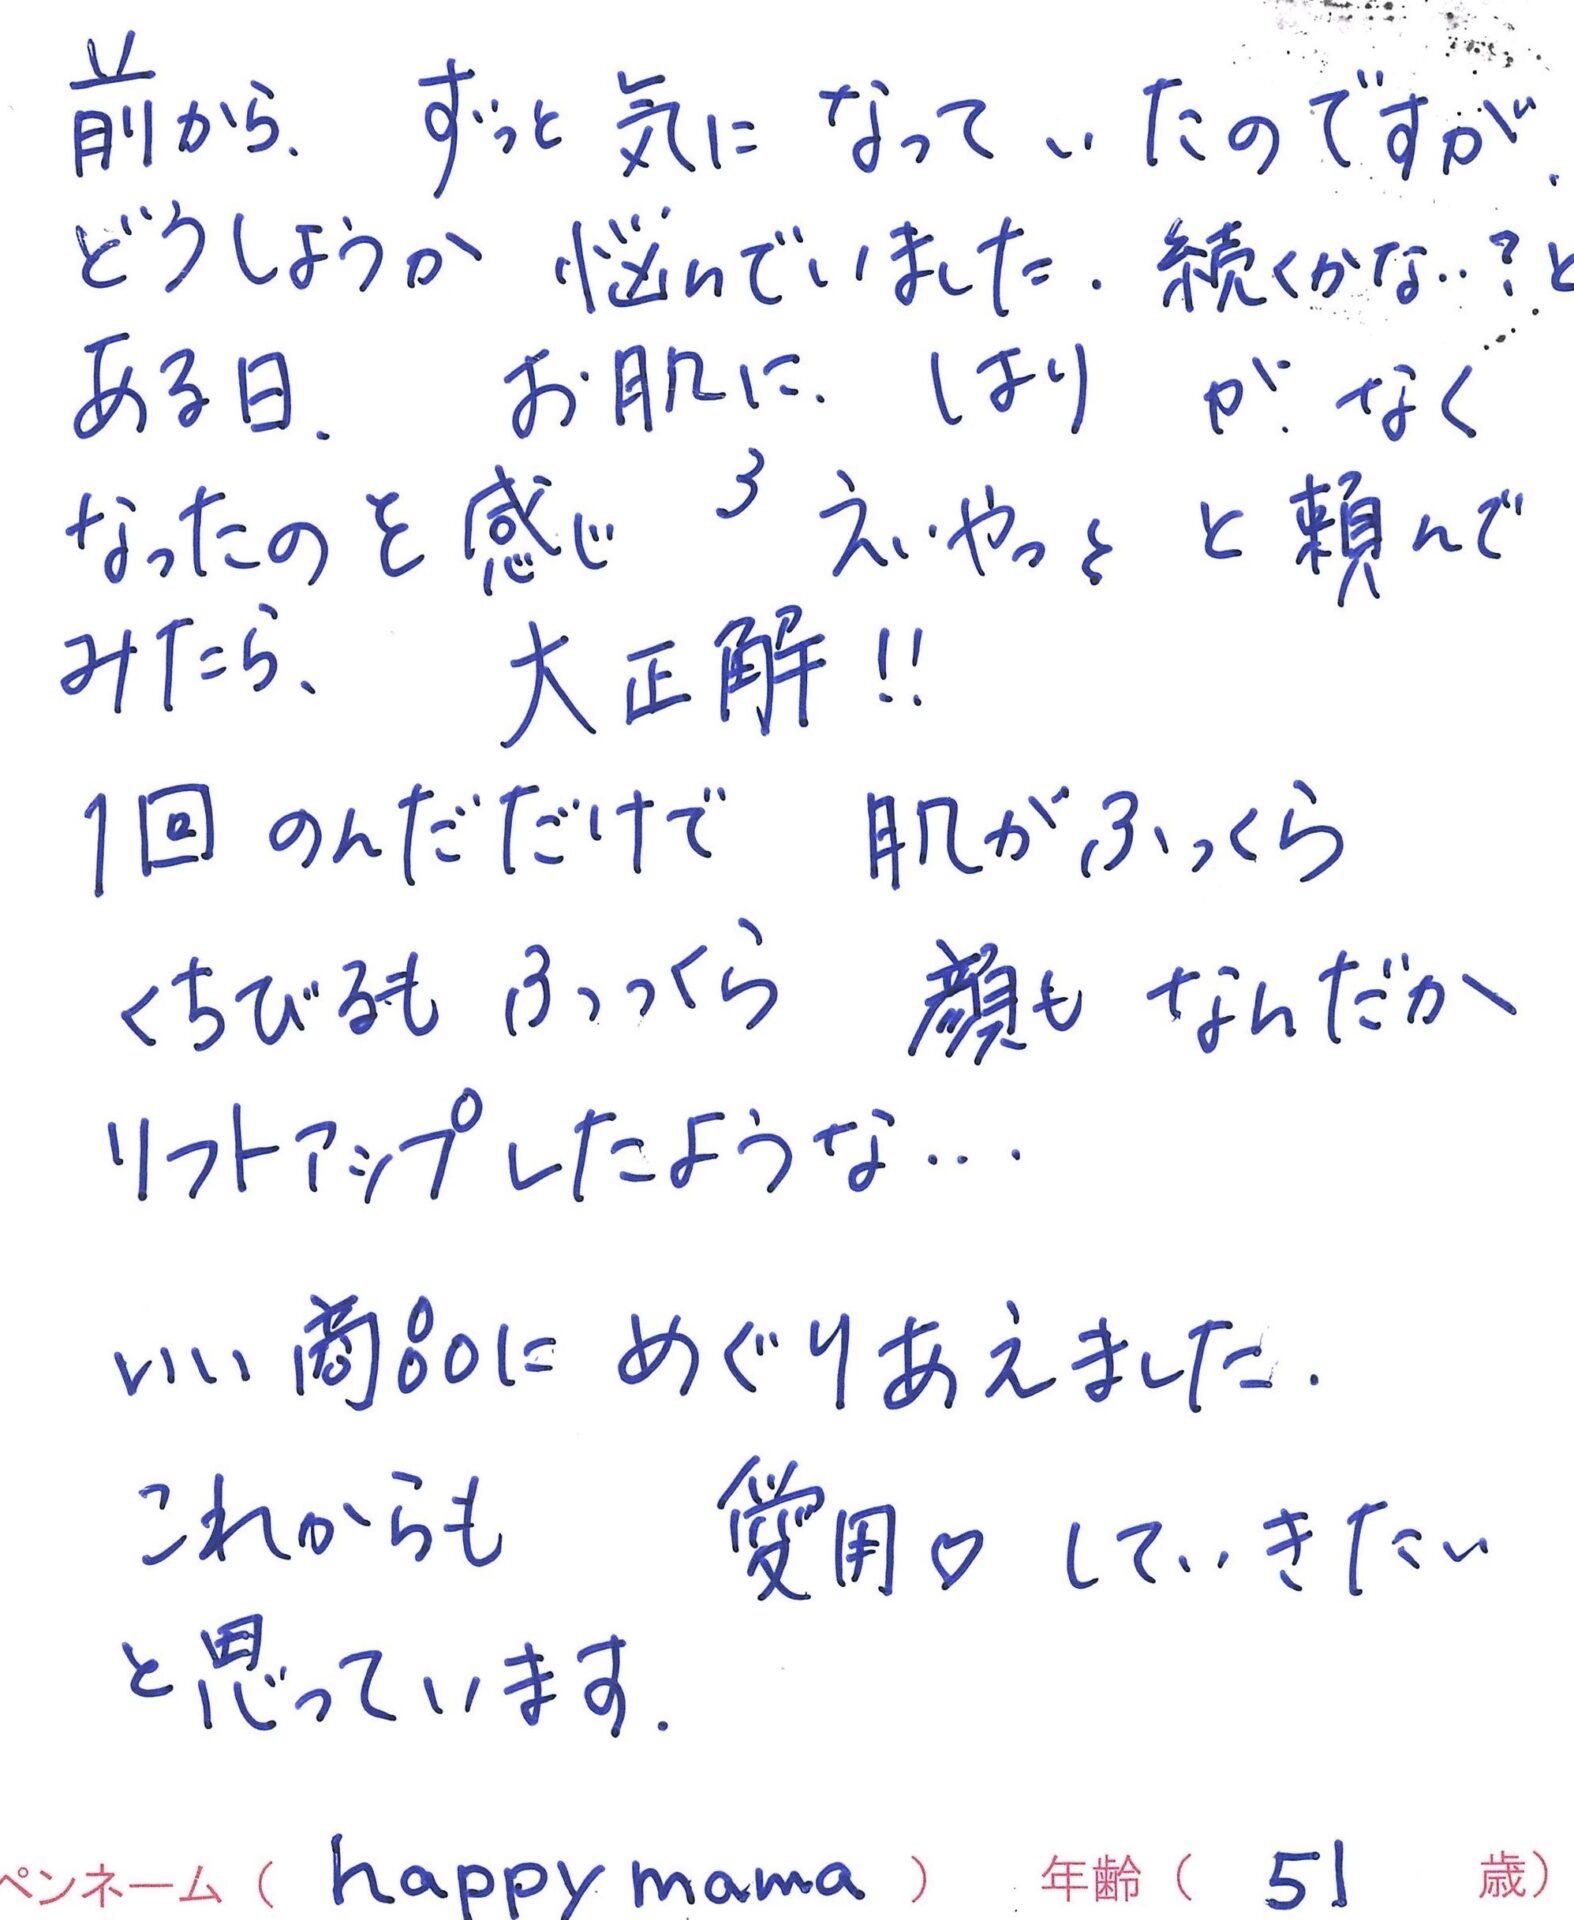 前から、ずっと気になっていたのですが、
どうしようか悩んでいました。続くかな‥？と
ある日、お肌に、はりがなく
なったのを感じ えいやっと と頼んで
みたら、大正解!!
1回のんだだけで 肌がふっくら
くちびるも ふっくら 顔も なんだか
リフトアップしたような…
いい商品に めぐりあえました。
これからも 愛用♡していきたい
と思っています。
ペンネーム（ happy mama ） 年齢（ 51 歳）